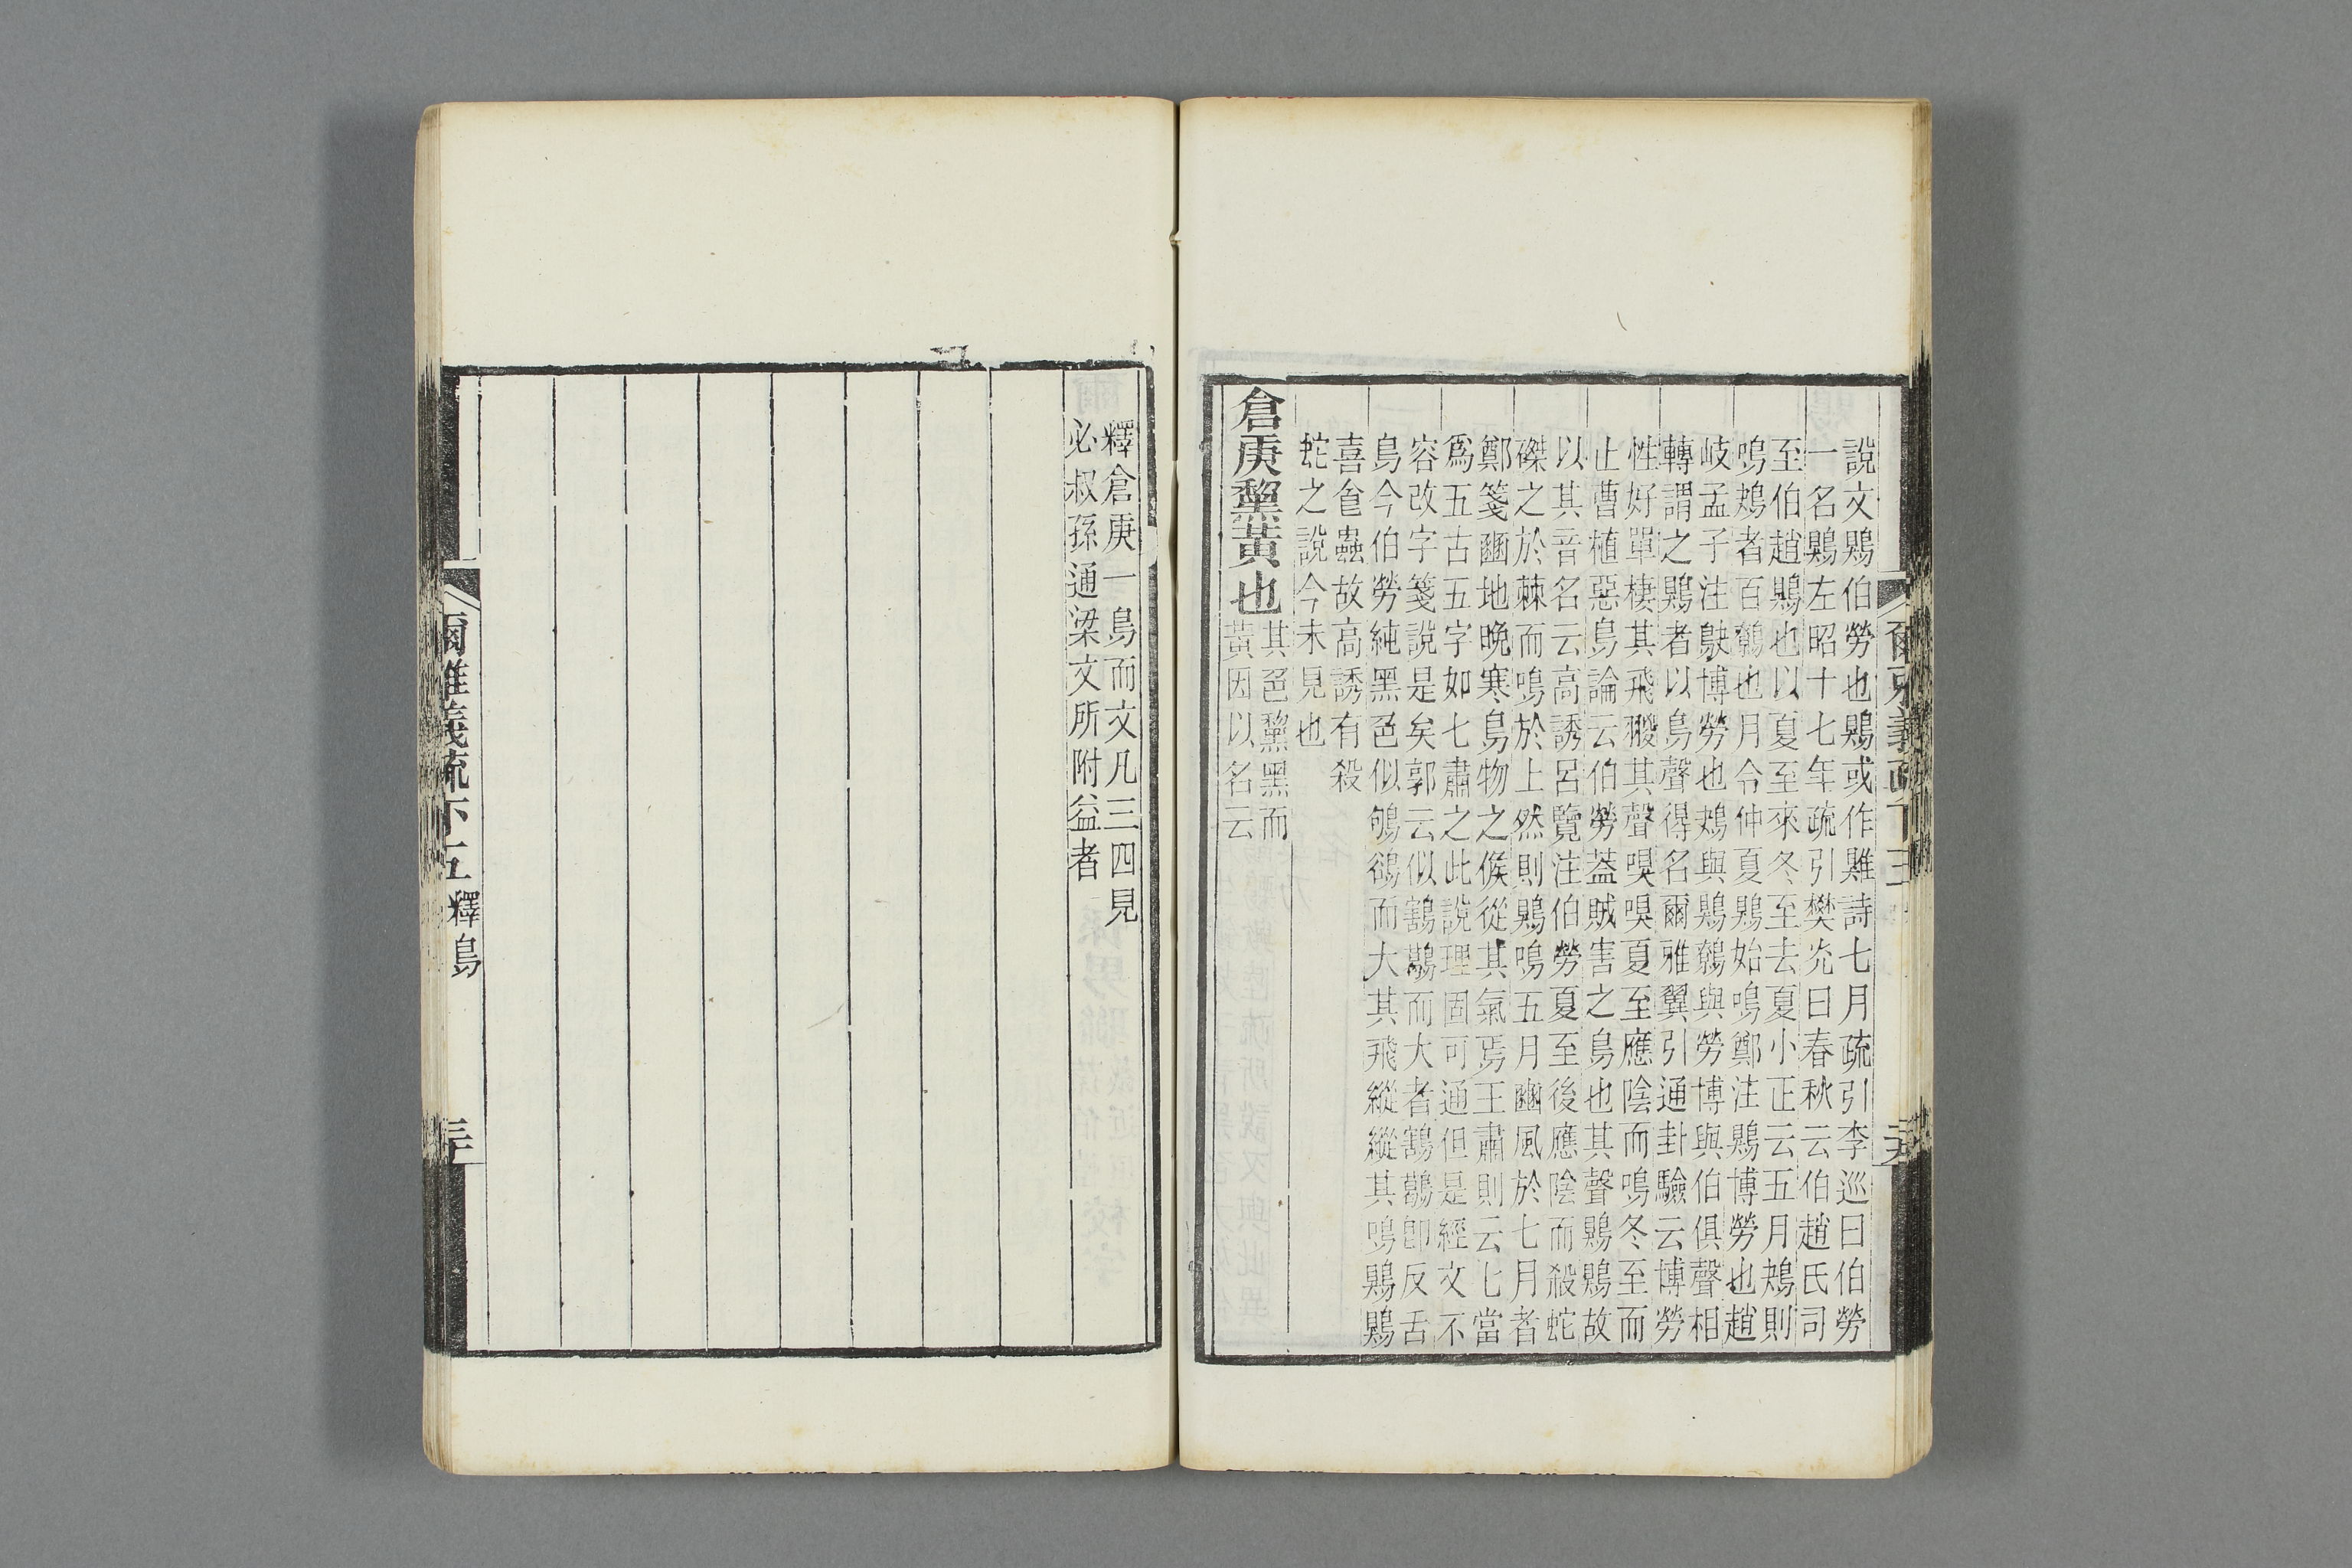 說文鶪伯勞也鶪或作雖詩七月疏引李巡曰伯勞
一名鶪左昭十七年疏引樊光曰春秋云伯趙氏司
至伯趙鶪也以夏至來冬至去夏小正云五月鴂則
鳴鴂者百鷯也月令仲夏鶪始鳴鄭注鶪博勞也趙
岐孟子注鴃博勞也鴂與鶪鷯與勞博與伯俱聲相
轉謂之鶪者以鳥聲得名爾雅翼引通卦驗云博勞
性好單棲其飛翪其聲嗅嗅夏至應陰而鳴冬至而
止曹植惡鳥論云伯勞蓋賊害之鳥也其聲鶪鶪故
以其音名云高誘呂覽注伯勞夏至後應陰而殺蛇
磔之於棘而鳴於上然則鶪鳴五月豳風於七月者
鄭箋豳地晚寒鳥物之候從其氣焉王肅則云七當
爲五古五字如七肅之此說理固可通但是經文不
容改字箋說是矣郭云似鶷鶡而大者鶷鶡卽反舌
鳥今伯勞純黑色似鴝鵒而大其飛縱縱其鳴鶪鶪
喜食蟲故高誘有殺
蛇之說今未見也
倉庚黧黃也
其色黧黑而
黃因以名云
爾雅義疏下五
釋倉庚一鳥而文凡三四見
必叔孫通梁文所附益者
爾雅義疏下五 釋鳥